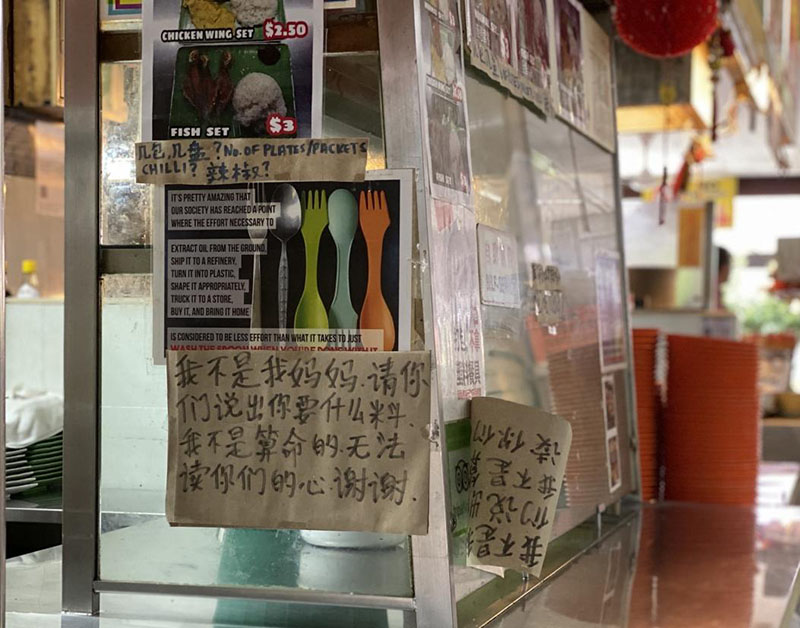 CHICKEN WING SET $2.50
FISH SET $3
几包,几盘?No. OF PLATES/PACKETS
CHILLI? 辣椒?
IT'S PRETTY AMAZING THAT
OUR SOCIETY HAS REACHED A POINT
WHERE THE EFFORT NECESSARY TO
EXTRACT OIL FROM THE GROUND,
SHIP IT TO A REFINERY,
TURN IT INTO PLASTIC,
SHAPE IT APPROPRIATELY,
TRUCK IT TO A STORE,
BUY IT, AND BRING IT HOME
IS CONSIDERED TO BE LESS EFFORT THAN WHAT IT TAKES TO JUST
WASH THE SPOON WHEN YOU'RE DONE WITH IT
我不是我妈妈.请你
们说出你要什么料.
我不是算命的.无法
读你们的心.谢谢.
我不是
们说出
我不是
读你们